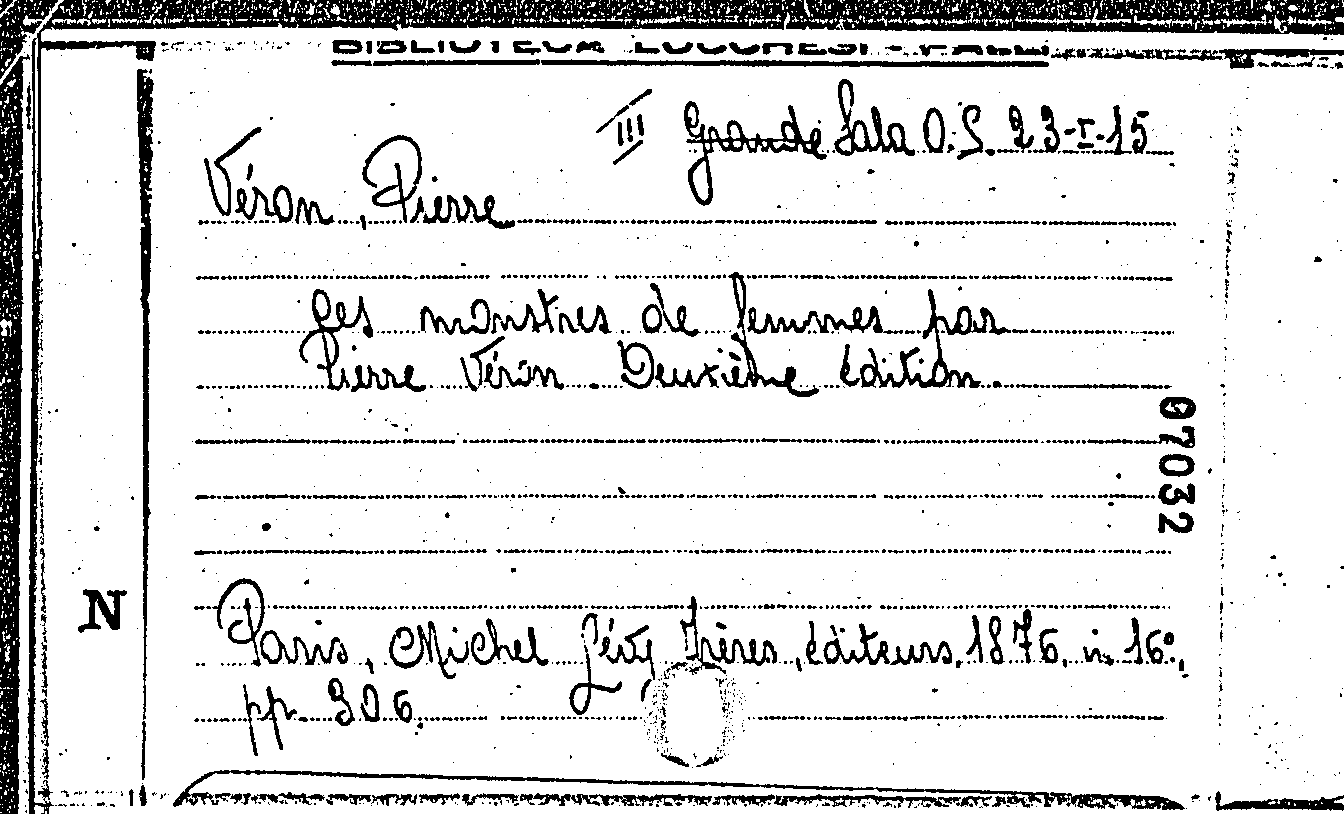 BIBLIOTECA LUCCHESI - PALLI
III Grande Sala O.S. 23-I-15
Véron, Pierre
Les monstres de femmes par
Pierre Véron. Deuxième édition.
07032
N
Paris, Michel Lévy Frères, éditeurs, 1876, in 16º,
pp. 306.